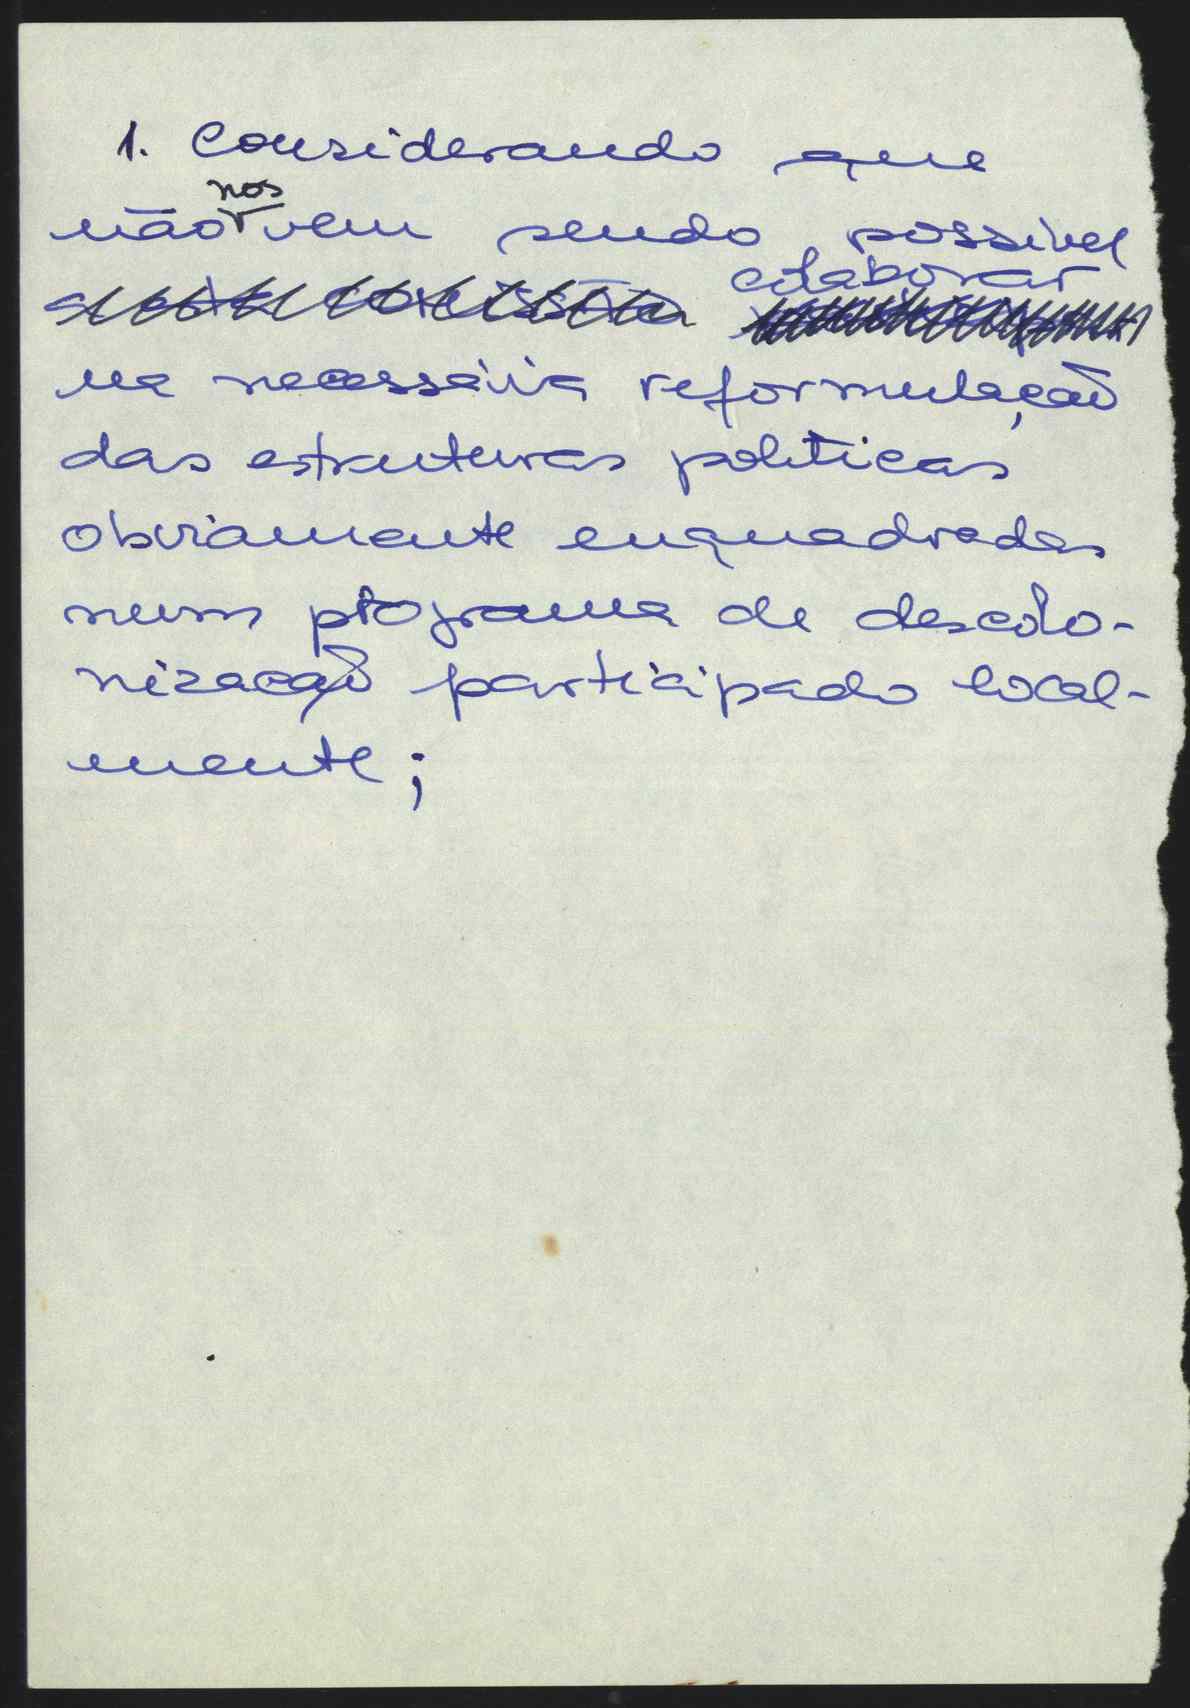 1. Considerando que
nos
não vem sendo possivel
colaborar
a esta comissão
na necessária reformulação
das estruturas politicas
obviamente enquadradas
num programa de descolo-
nização participado local-
mente;